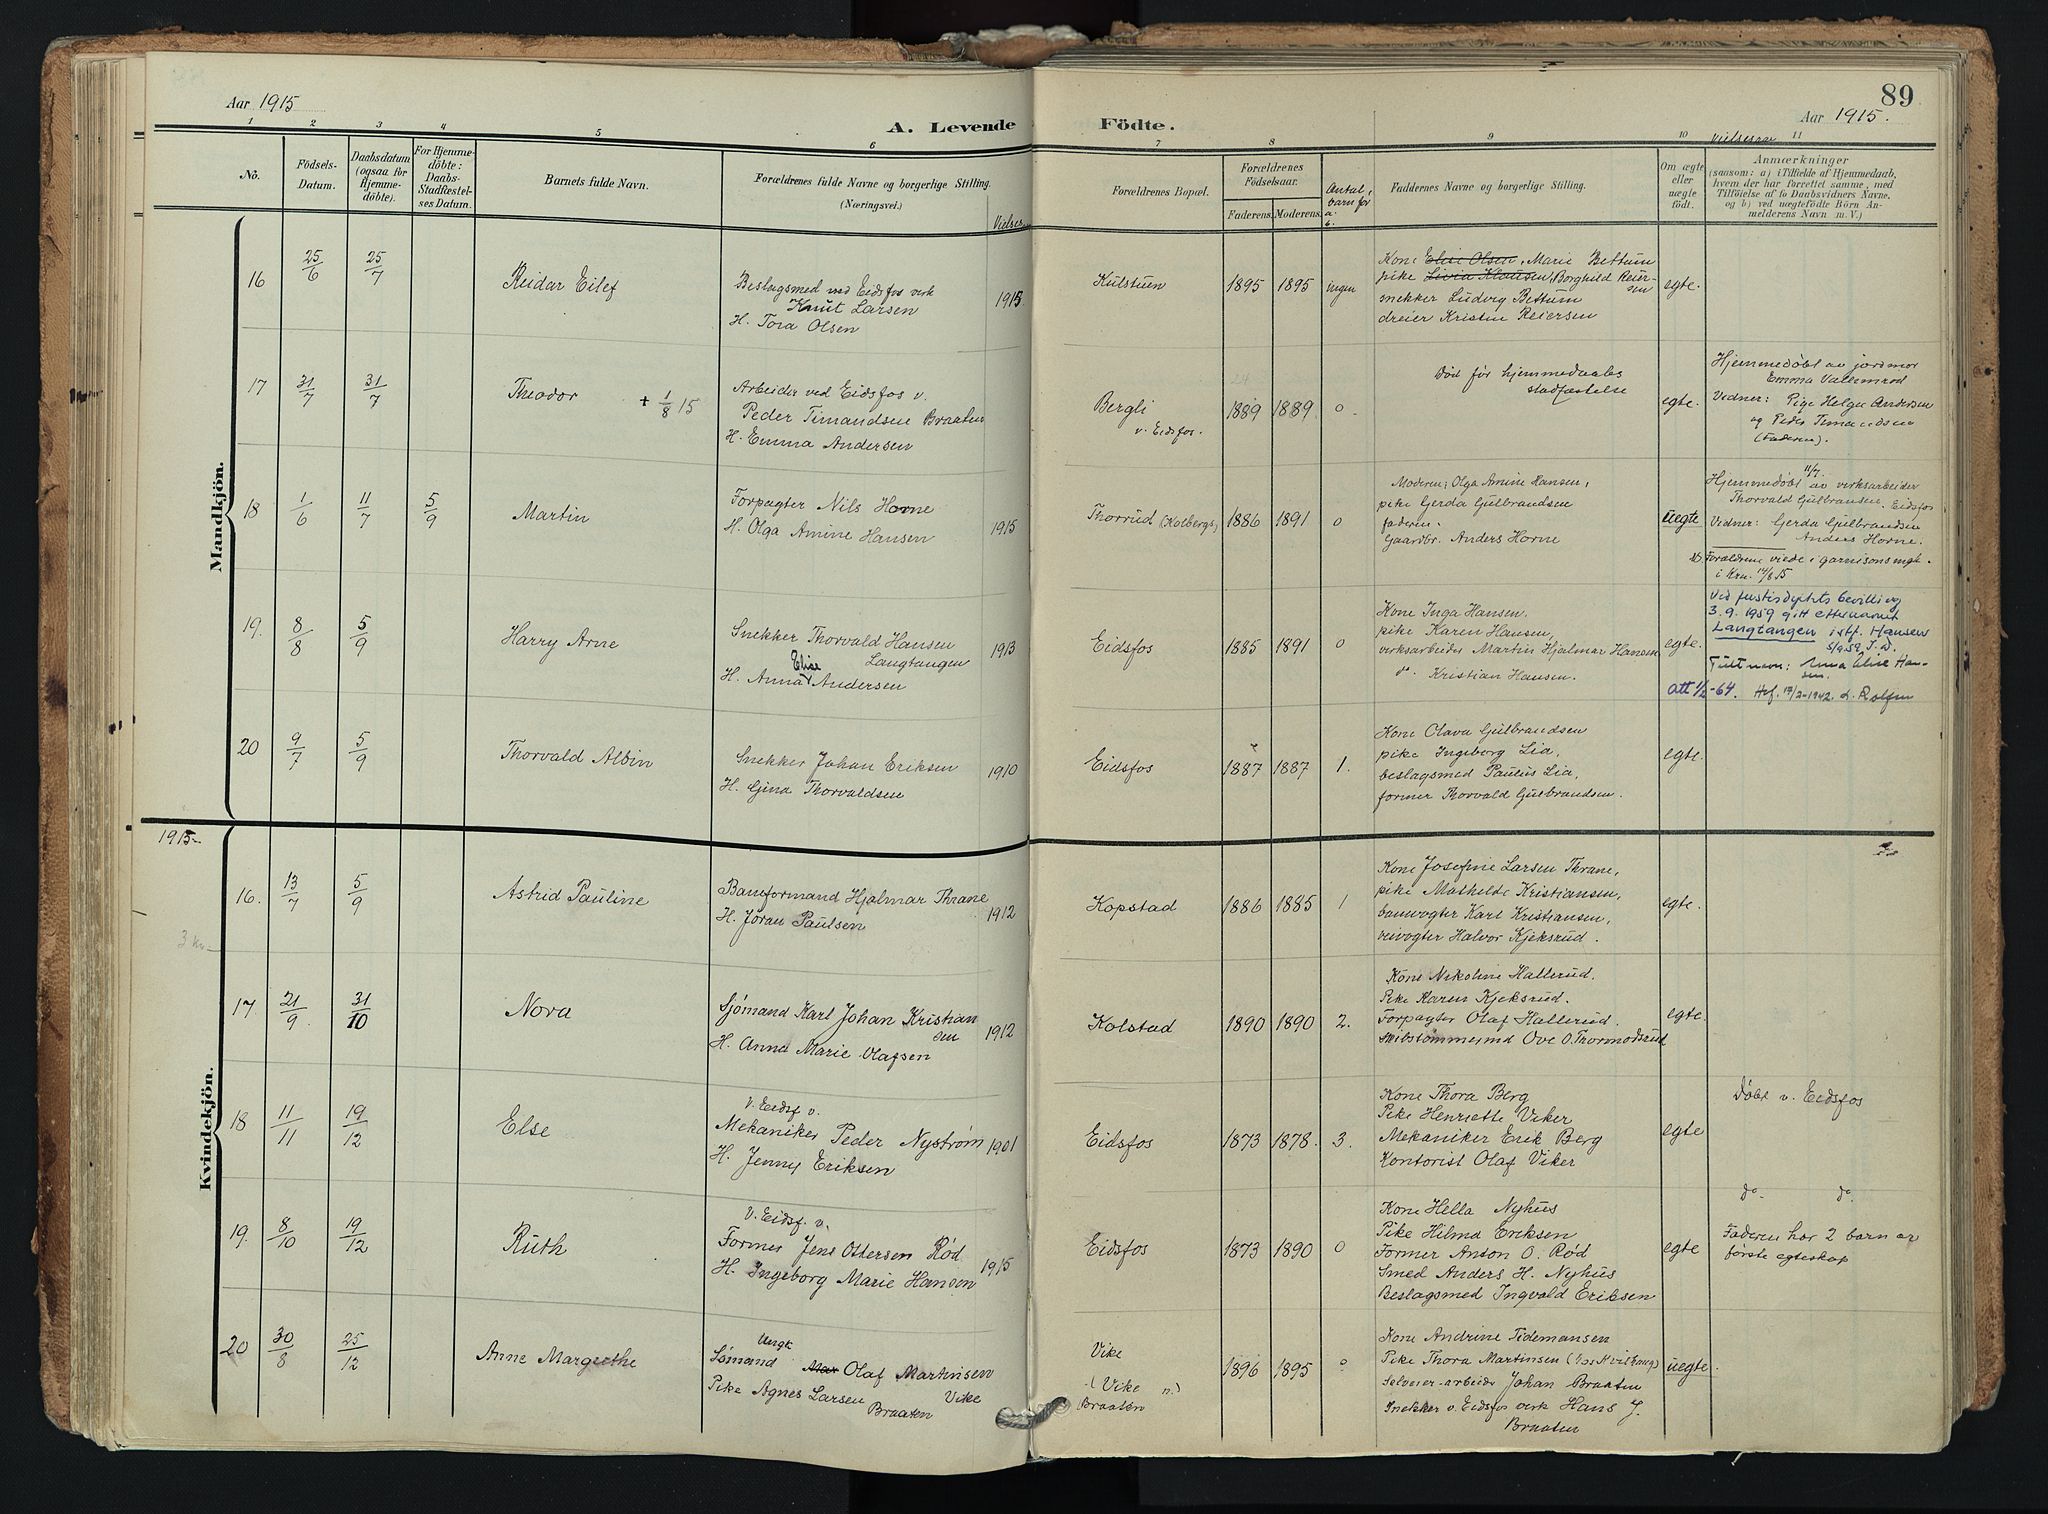 89
Aar 1915
Aar 1915.
A. Levende Födte.
1 2 3 4 5 6 7 8 9 10 11
No.
Födsels-
Datum.
Daabsdatum
(ogsaa for
Hjemme-
döbte).
For Hjemme-
döbte:
Daabs-
Stadfæstel-
ses Datum.
Barnets fulde Navn.
Forældrenes fulde Navne og borgerlige Stilling.
(Næringsvei.)
Forældrenes Bopæl.
Forældrenes
Födselsaar.
Faderens. Moderens.
Antal
barn før
Faddernes Navne og borgerlige Stilling.
Om ægte
eller
uægte
födt.
Vielsesaar
Anmærkninger
(saasom: a) i Tilfælde af Hjemmedaab,
hvem der har forrettet samme, med
Tilföielse af to Daabsvidners Navne,
og b) ved uægtefödte Börn An-
melderens Navn m. V.)
Mandkjön.
16 25/6 25/7 Reidar Eilef
Beslagsmed ved Eidsfos verk
Knut Larsen
H. Tora Olsen
1915
Kulstuen 1895 1895 ingen
Kone Elise Olsen, Marie Bettum
pike Livia Knutsen, Borghild Reier-
sen
snekker Ludvig Bettum
dreier Kristen Reiersen
egte.
17 31/7 31/7 Theodor + 1/8 15
Arbeider ved Eidsfos v.
Peder Timandsen Braaten
H. Emma Andersen
Bergli
v. Eidsfos.
24
1889 1889 0
Død før hjemmedaabs
stadfæstelse
egte.
Hjemmedøbt av jordmor
Emma Vallemrød
Vidner: Pige Helga Andersen
og Peder Timandsen
(Faderen).
18 1/6 11/7 5/9 Martin
Forpagter Nils Horne
H. Olga Amine Hansen
1915
Thorrud (Kolbergs) 1886 1891 0
Moderen; Olga Amine Hansen,
pike Gerda Gulbrandsen
faderen.
Gaardbr. Anders Horne
uegte
11/7.
Hjemmedøbt av verksarbeider
Thorvald Gulbransen. Eidsfos
Vidner: Gerda Gulbrandsen
Anders Horne.
Forældrene viede i garnisonsmgt.
i Kra. 14/8 15
19. 8/8 5/9 Harry Arne
Snekker Thorvald Hansen
Langtangen
Elise
H. Anna Andersen
1913
Eidsfos 1885 1891 0
Kone Inga Hansen.
pike Karen Hansen,
verksarbeider Martin Hjalmar Hansen
do. Kristian Hansen.
egte.
Ved justisdptets bevilling
3.9.1959 gitt etternavnet
Langtangen istf. Hansen
5/9.59
Fullt navn: Anna Elise Han-
sen.
Att 1/2-64.
20 9/7 5/9 Thorvald Albin
Snekker Johan Eriksen
H. Gina Thorvaldsen
1910
Eidsfos 1887 1887 1.
Kone Olava Gulbrandsen
pike Ingeborg Lia,
beslagsmed Paulus Lia,
former Thorvald Gulbrandsen.
egte.
1915
Kvindekjön.
16. 13/7 5/9 Astrid Pauline
Baneformand Hjalmar Thrane
H. Jøran Paulsen
1912
Kopstad 1886 1885 1
Kone Josefine Larsen Thrane,
pike Mathilde Kristiansen,
banevogter Karl Kristiansen,
veivogter Halvor Kjeksrud.
egte.
3 Kr.
17 21/9. 31/10 Nora
Sjømand Karl Johan Kristian
sen
H. Anna Marie Olafsen
1912
Kolstad 1890 1890 2.
Kone Nikoline Hallerud.
Pike Karen Kjeksrud.
Forpagter Olaf Hallerud.
Skibstømmermd Ove O. Thormodsrud
egte.
18 11/11 19/12 Else
v. Eidsf v.
Mekaniker Peder Nystrøm
H. Jenny Eriksen
1901
Eidsfos 1873 1878. 3.
Kone Thora Berg
Pike Henriette Viker
Mekaniker Erik Berg
Kontorist Olaf Viker
egte
Døbt v. Eidsfos
19. 8/10 19/12 Ruth
v. Eidsf. v.
Former Jens Ottersen Rød
H. Ingeborg Marie Hansen
1915
Eidsfos 1873 1890 0
Kone Hella Nyhus
Pike Hilma Eriksen
Former Anton O. Rød
Smed Anders H. Nyhus
Beslagsmed Ingvald Eriksen
egte
do. do.
Faderen har 2 barn av
første egteskap
20 30/8 25/12 Anne Margrethe
Ungk
Sømand Max Olaf Martinsen
Vike
Pike Agnes Larsen
Braaten
Vike
(Vike n.)
Braaten
1896 1895 0
Kone Andrine Tidemansen
Pike Thora Martinsen (hos Kvilhaug)
Selveier-arbeide Johan Braaten
Snekker v. Eidsfos verk Hans J.
Braaten
uegte.